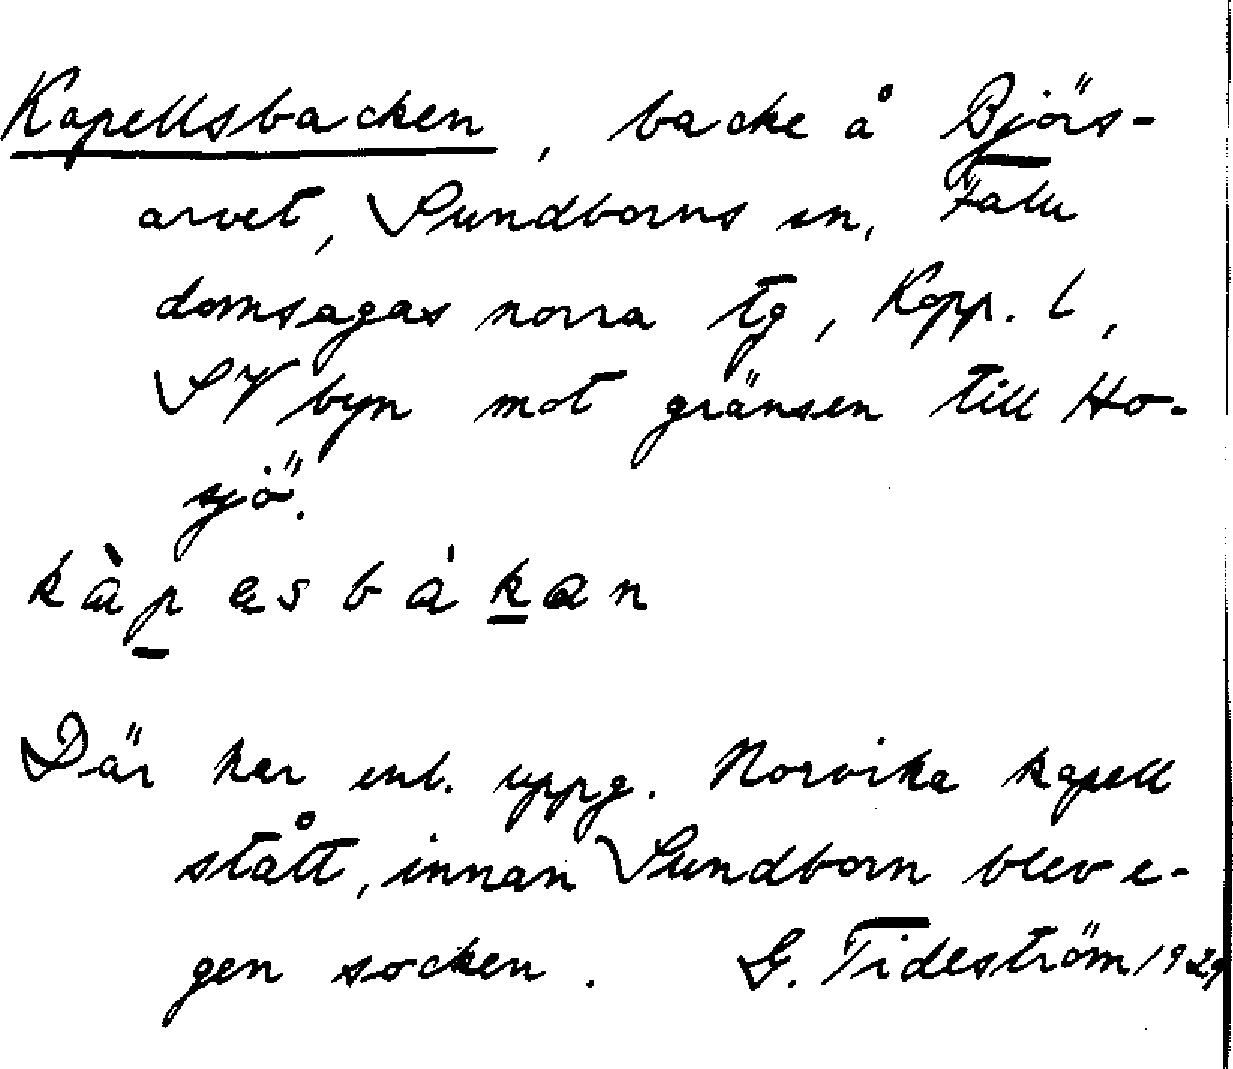 Kapellsbacken, backe å Björs-
arvet, Sundborns sn, Falu
domsagas norra tg, Kopp. l,
SV byn mot gränsen till Ho-
sjö.
kàpesbákan
Där har enl. uppg. Norvika kapell
stått, innan Sundborn blev e-
gen socken. G. Tideström 1929